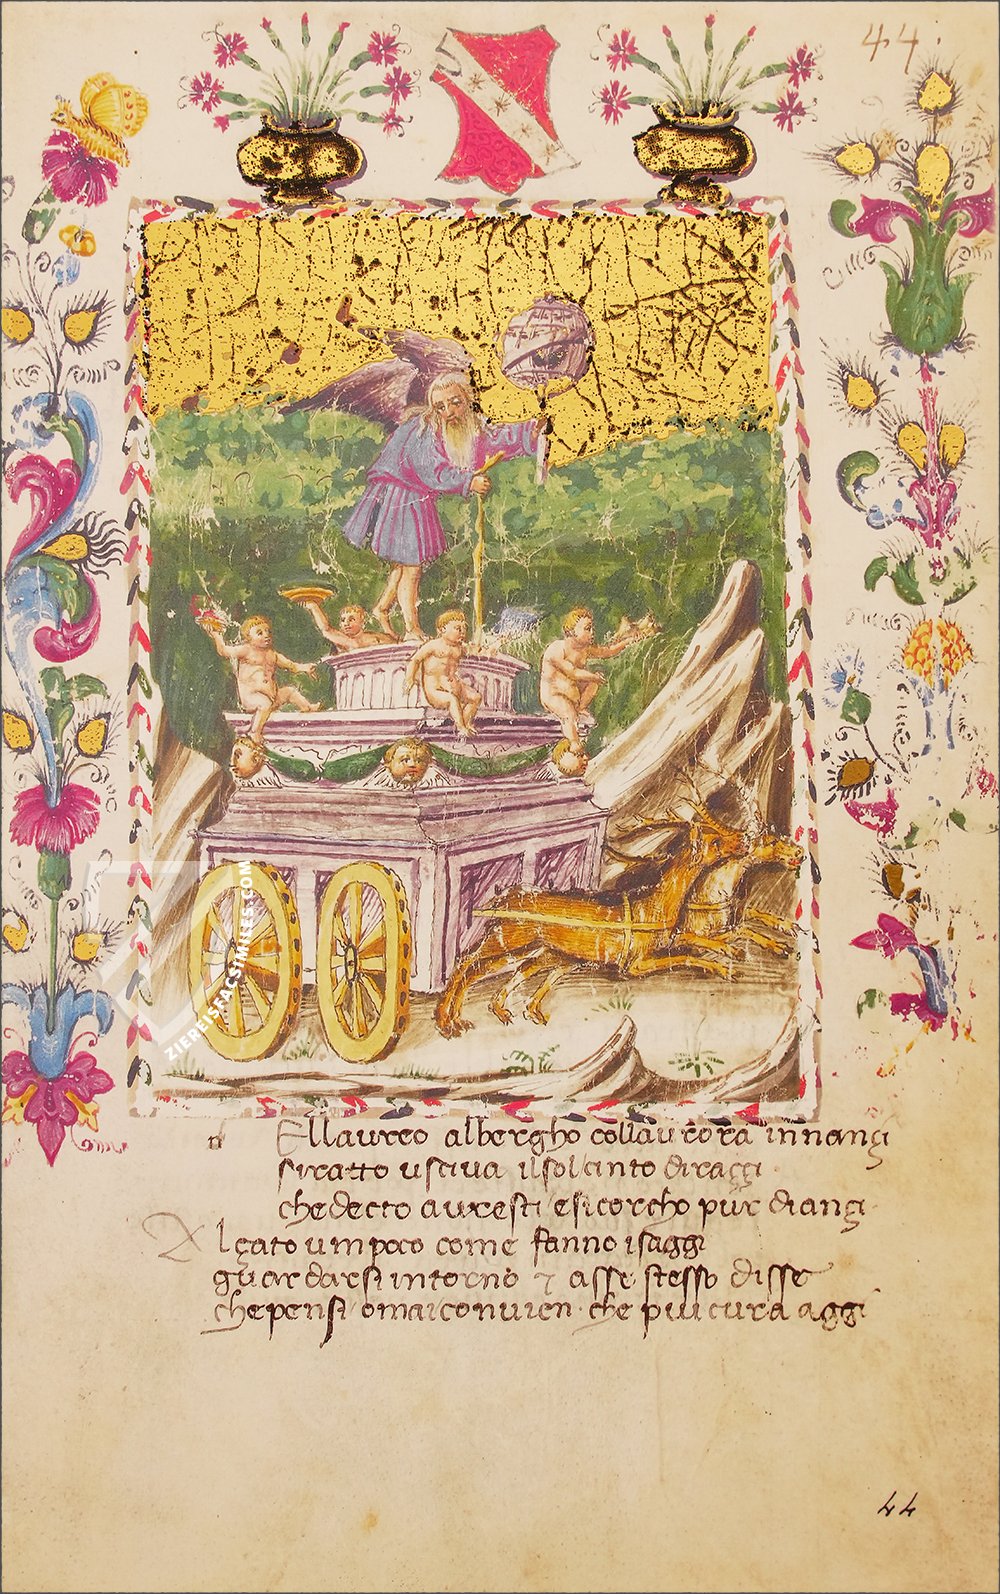 44.
ZIEREISFACSIMILES.COM
n Ellaureo albergho collaurora innanzi
siratto usciua ilsolcinto diraggi.
chedecto auresti esicorcho pur dianzi.
Alçato um poco come fanno isaggi
guardarsi intorno ⁊ asse stesso disse
chepensi omaiconuien. che piu cura aggi
44